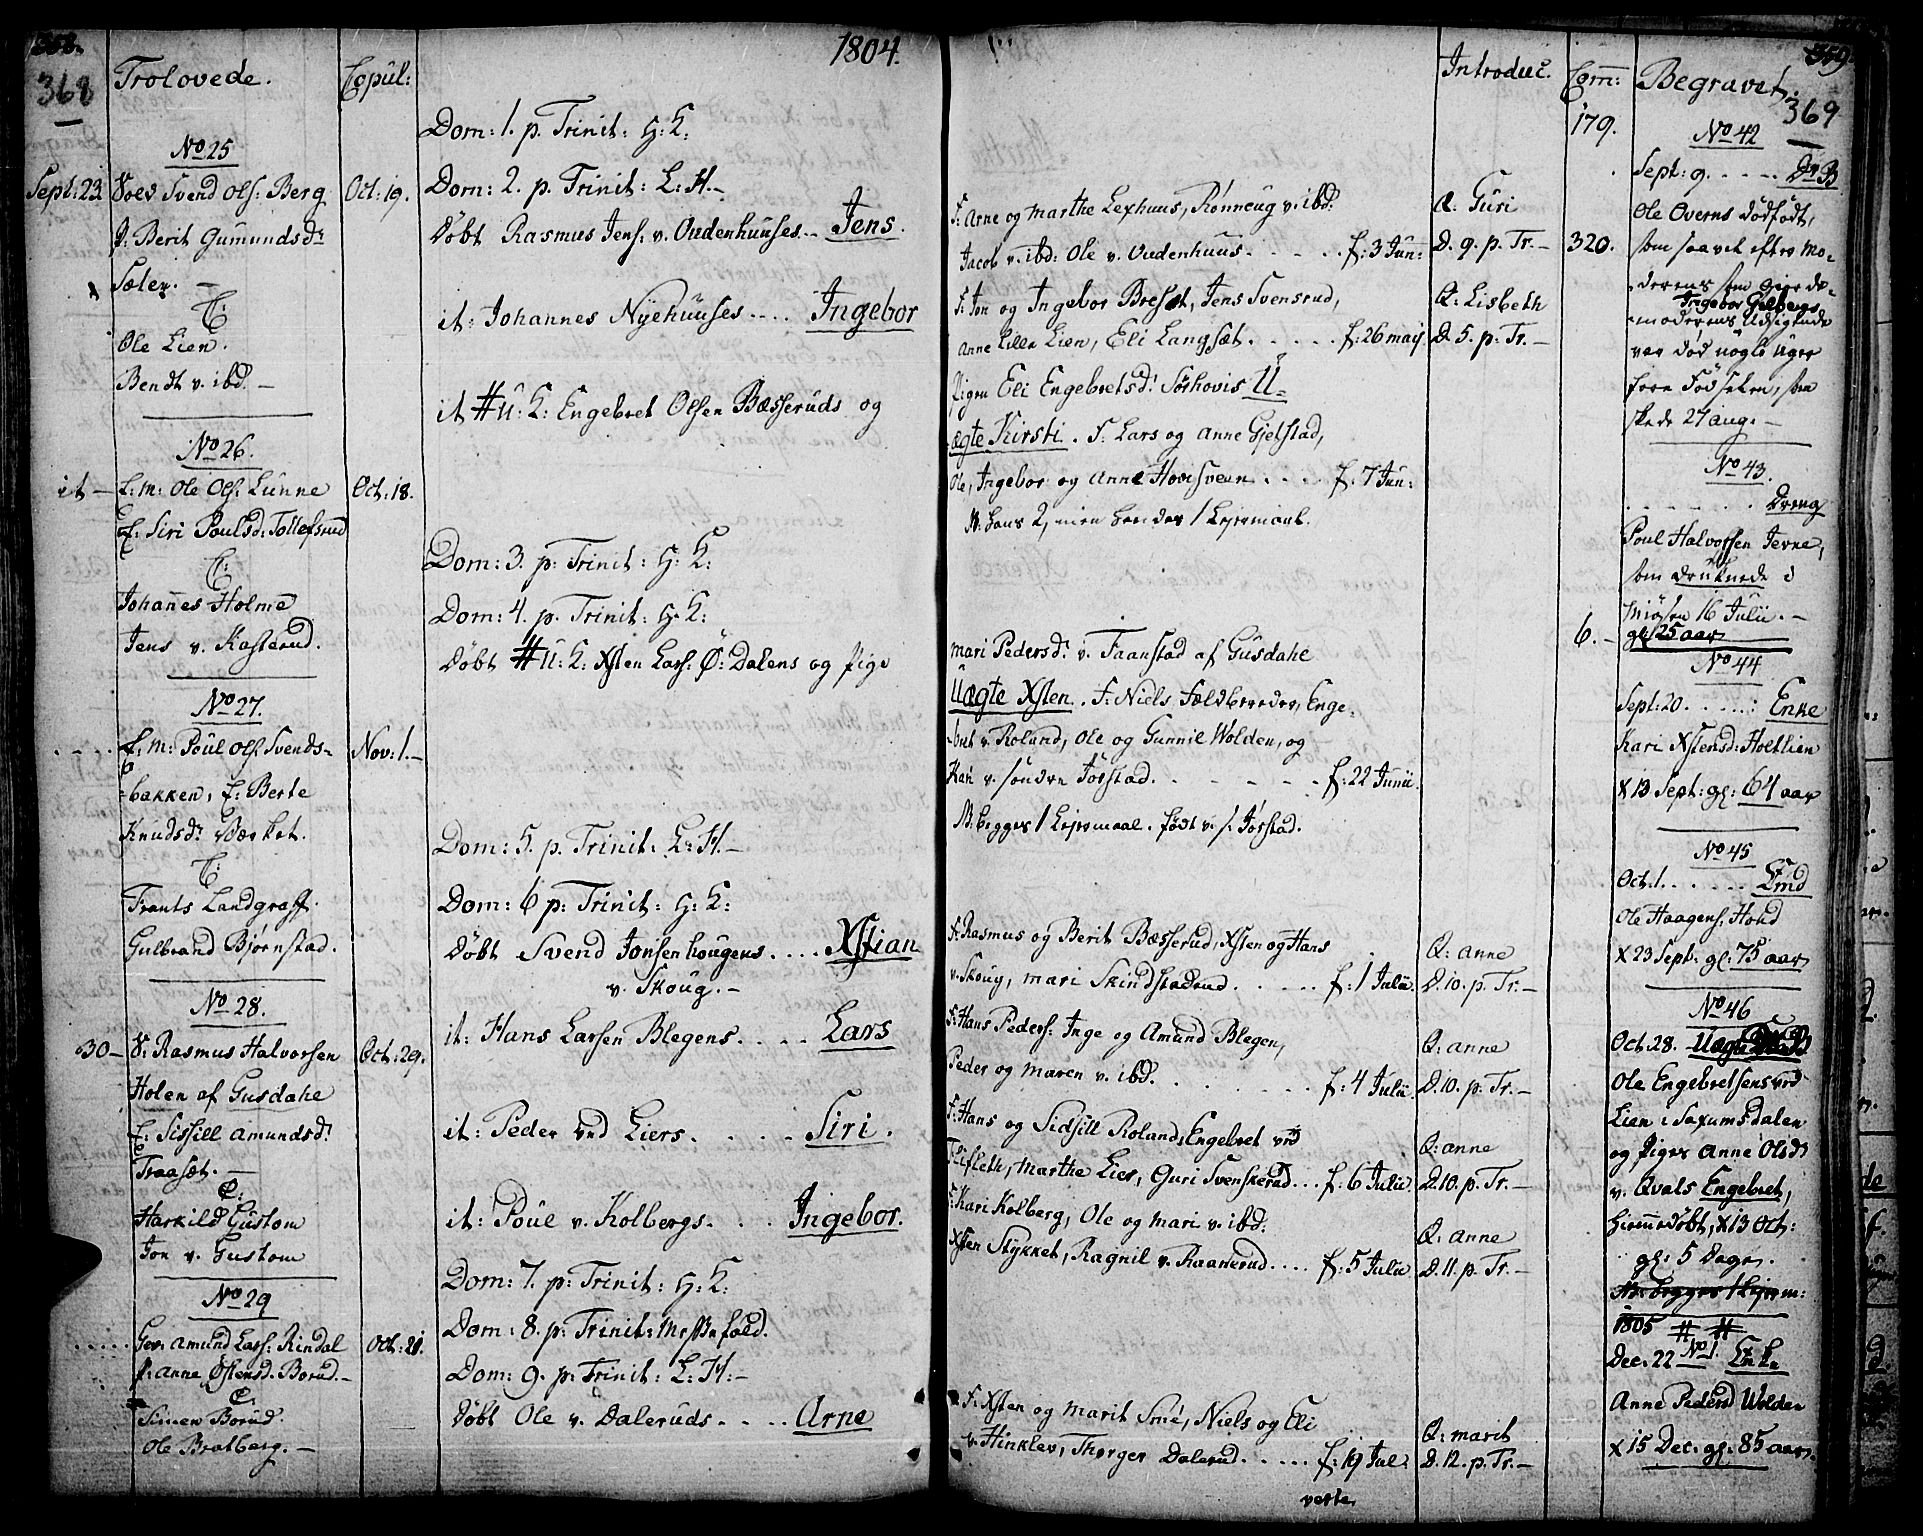 368
Trolovede.
Copul:
1804.
No 25
Sept: 23
Svend Ols: Berg
Oct: 19.
P. Berit Gumundsdr
C:
Ole Lien.
Bendt v. ibd. —
No 26.
it —
E: M: Ole Ols: Lunne
Oct: 18.
E: Siri Poulsd: Tollefsrud
C:
Johannes Holme
Jens v. Kasterud.
No 27.
E: M: Poul Ols: Svends-
Nov: 1. —
bakken, E: Berte
Knudsdr Værket.
C:
Frants Landgraff.
Gulbrand Bjørnstad.
No 28.
30 —
Rasmus Halvorsen
Oct: 29.
Holen af Gusdahe
E: Sissill Amundsd:
Traaset. —
C:
Harkild Gustom
Jon v. Gustom
No 29
Amund Lars: Rindal
Oct: 21.
P: Anne Østensd. Borud. —
C.
Simen Borud.
Ole Bratberg. —
Dom: 1. p. Trinit: H: K:
Dom: 2. p. Trinit: L: H. —
Døbt Rasmus Jens: v. Oudenhuuses. — Jens.
it: Johannes Nyehuuses .... Ingebor
it # U: K: Engebret Olsen Bæsseruds og
Dom: 3. p: Trinit: H: K:
Dom: 4. p. Trinit: H: K:
Døbt # U: K: Xsten Lars: Ø: Dalens og Pige
Dom: 5. p. Trinit: L: H. —
Dom: 6 p: Trinit: H: K:
Døbt Svend Jonsen hougens .... Xstian
v. Skoug. —
it: Hans Larsen Blegens. .... Lars
it: Peder vrd Liers. .... Siri.
it: Poul v. Kolbergs. ... Ingebor.
Dom: 7. p: Trinit: H: K:
Dom: 8. p: Trinit: Messefald.
Dom: 9. p: Trinit: L: H: —
Døbt Ole v. Daleruds .... Arne
359
369
Introduc.
Com:
Begravet.
179.
F: Arne og Marthe Lexhuus, Rønneug v. ibd.
Q: Guri
Jacob v. ibd: Ole v. Oudenhuus. .... f: 3 Jun:
D. 9. p. Tr. —
320.
F: Jon og Ingebor Bresæt, Jens Svensrud,
Q: Lisbeth
Anne Lille Lien, Eli Langsæt. .... f: 26 Maij
D. 5. p. Tr. —
Pigen Eli Engebretsd: Sørhovis U-
ægte Kirsti. F: Lars og Anne Gjetstad,
Ole, Ingebor og Anne Hovisveen .... f: 7 Jun:
N: hans 2, men hendes 1 Lejermaal.
6. —
Mari Pedersd: v. Faanstad af Gusdahe
Uægte Xsten. F: Niels Feldbereder, Enge-
bret v. Roland, Ole og Gunnil Wolden, og
Kari v. søndre Jørstad. .... f: 22 Junii.
N: begges 1 Lejermaal. født v. s. Jørstad.
F: Rasmus og Berit Bæsserud, Xsten og Hans
Q: Anne
v. Skoug, Mari Skindstadrud .... f: 1 Julii.
D. 10. p. Tr. —
F: Hans Peders: Inge og Amund Blegen,
Q: Anne
Peder og Maren v. ibd. .... f: 4 Julii
D. 10. p. Tr. —
F: Hans og Sidsill Roland, Engebret vrd
Q: Anne
Flifleth, Marthe Lier, Guri Svenskerud ... f: 6 Julii.
D. 10. p. Tr. —
F: Kari Kolberg, Ole og Mari v. ibd:
Q: Anne
Xsten Stykket, Ragnil v. Raanerud .... f: 5 Julii
D. 11. p. Tr. —
F: Xsten og Marit Smé, Niels og Eli
Q: Marit
v. Hinklev, Thorger Dalerud ..... f: 19 Jul.
D. 12. p. Tr. —
verte
No 42
Sept: 9. .... Dr B
Ole Overns dødfødt,
som saavet efter Mo-
derens som Gjorde-
Ingebor Golbergs
moderens Udsigende
var død nogle Uger
føre Fødselen, som
skede 27 Aug. —
No 43.
...... Dreng
Poul Halvorsen Jevne,
som druknede i
Miøsen 16 Julii. —
gl: 25 aar
No 44
Sept: 20. ....: Enke
Kari Xstensd: Holtlien
X 13 Sept: gl: 64 aar
No 45
Oct. 1. ..... Emd
Ole Haagens: Houd
X 23 Sept: gl: 75 aar
No 46
Oct: 28. Uægte
Ole Engebretsens vrd
Lien i Saxumsdalen
og Piges Anne Olsd
v. Qvals Engebret,
hiemmedøbt, X 13 Oct:
gl: 5 Dage.
N: begges 1 Lejerm:
1805 # #
Dec. 22 No 1. Enke
Anne Pedersd Wolden
X 15 Dec. gl: 85 aar.